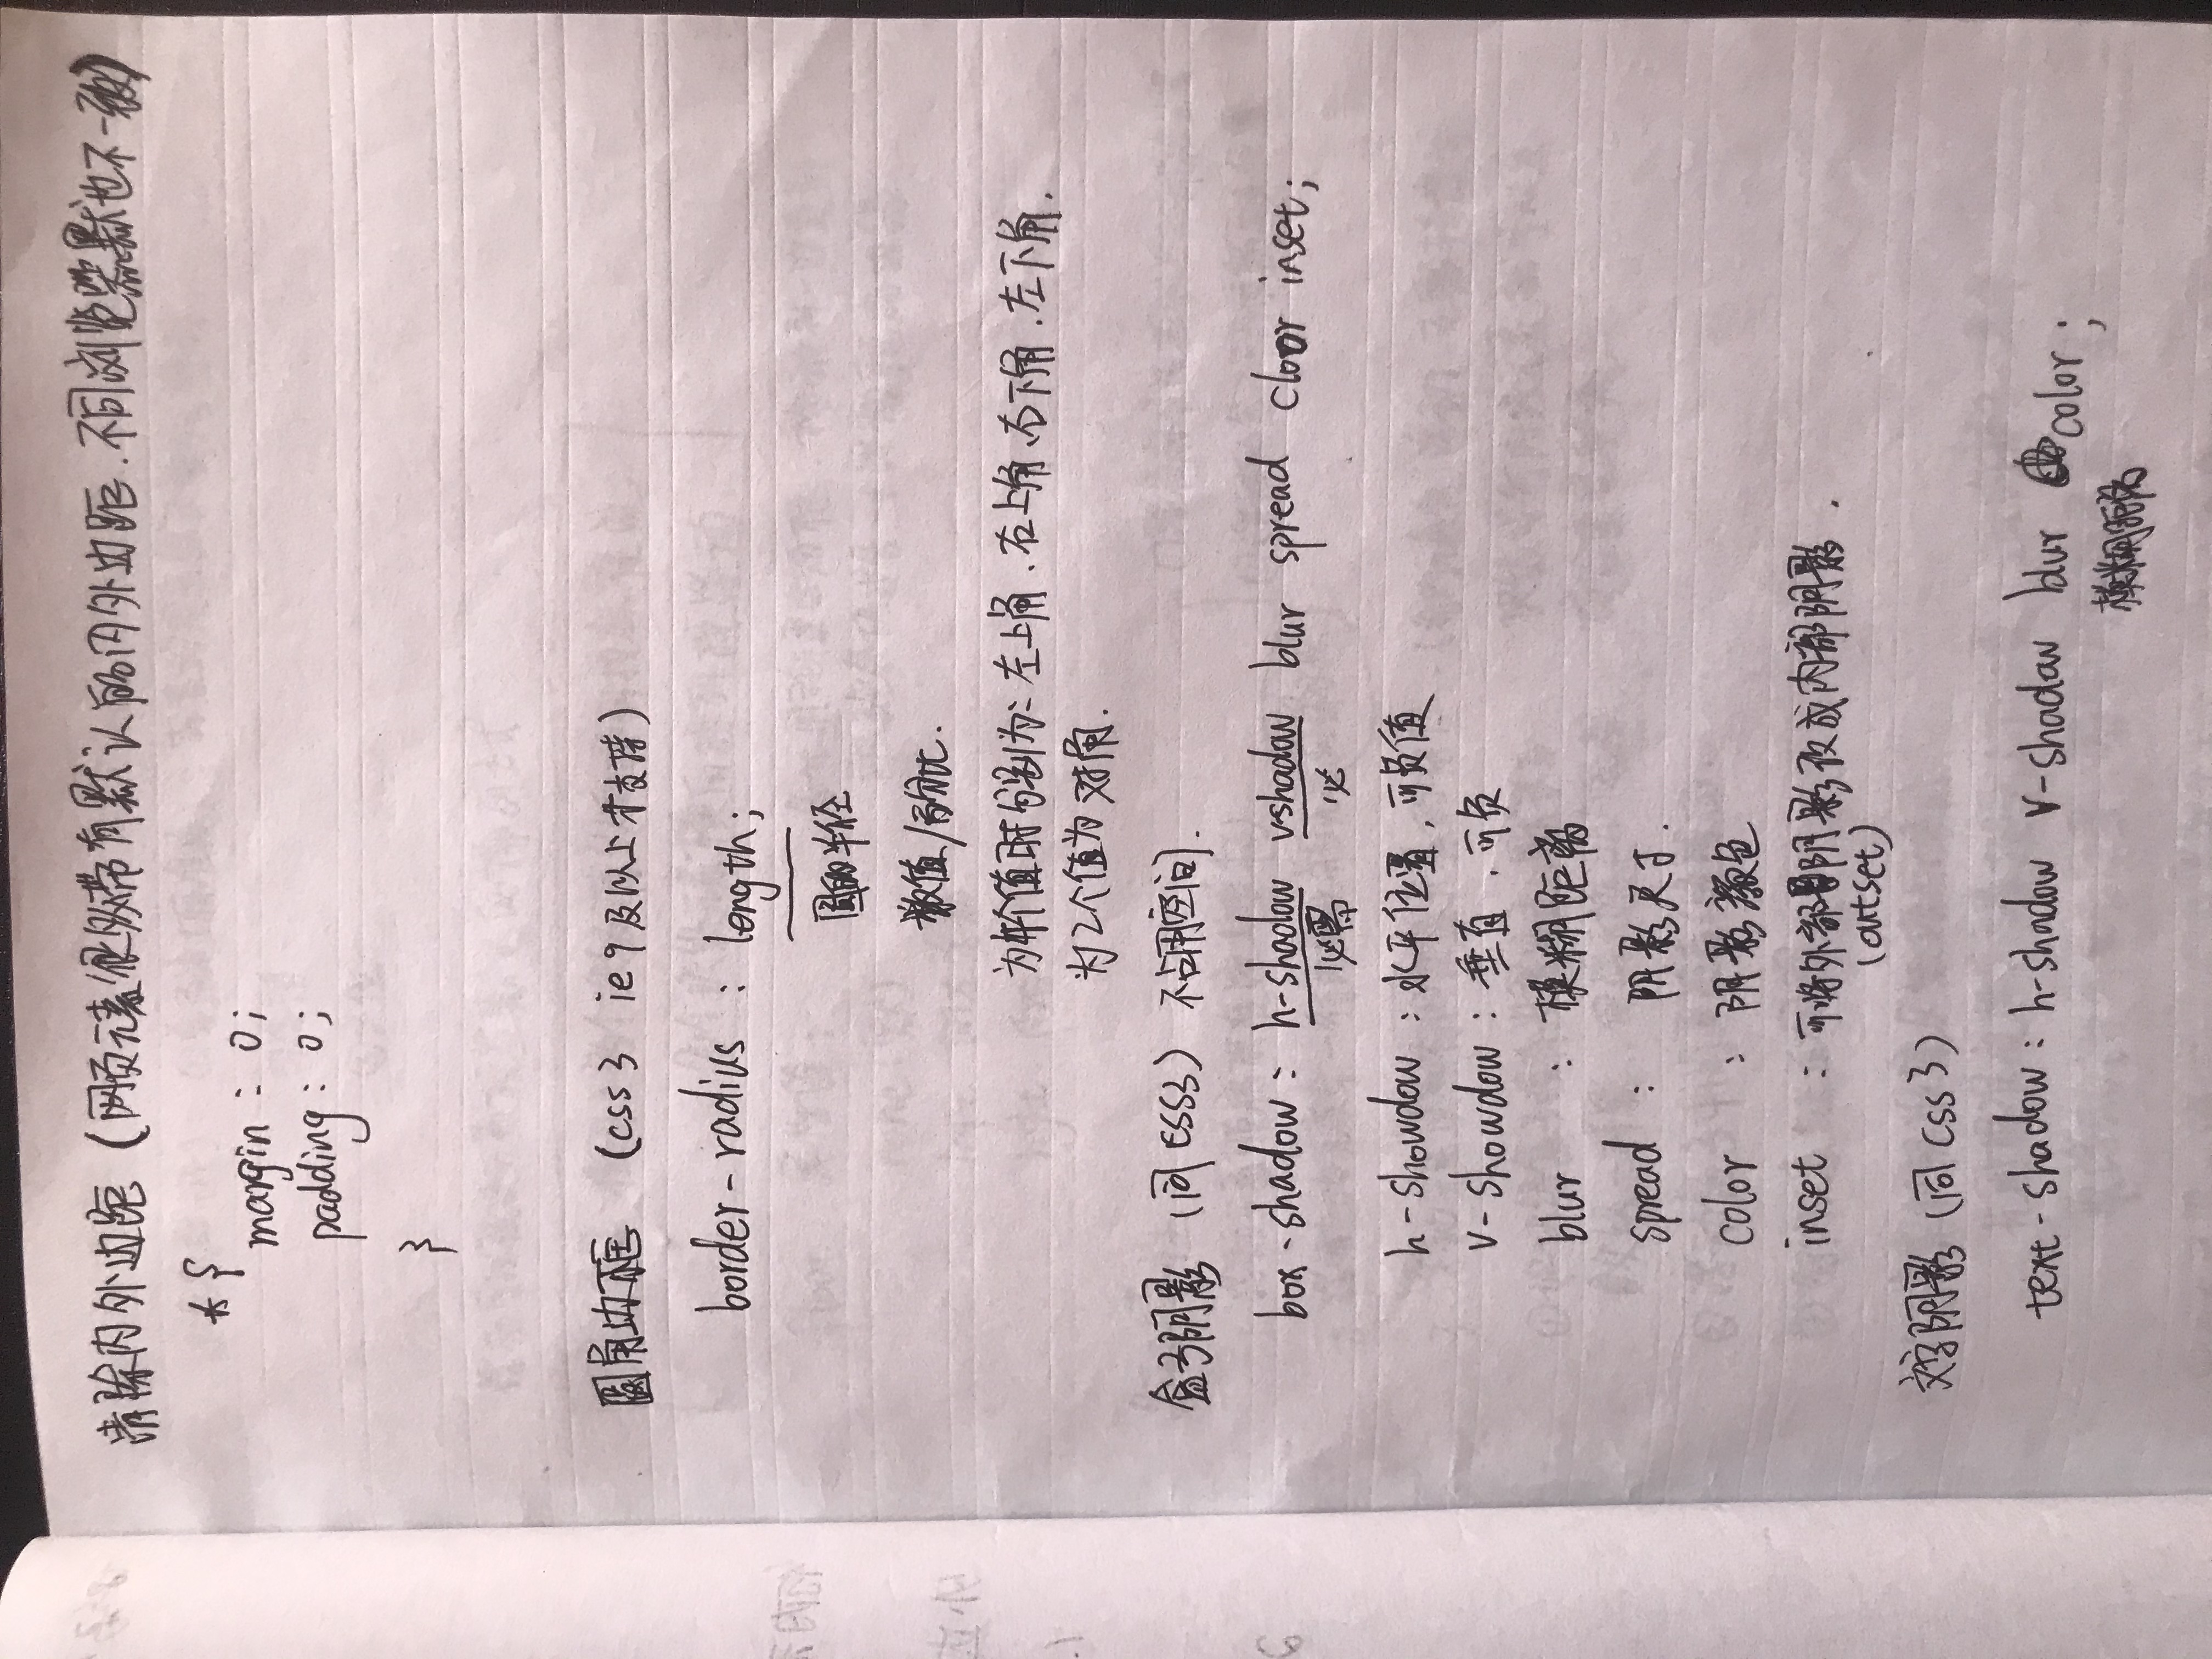 清除内外边距(网页元素很多带有默认的内外边距.不同浏览器默也不一致)
*{
margin: 0;
padding: 0;
}
圆角边框 (css3 ie9及以上才支持)
border-radius : length;
圆的半径
数值/百分比.
为4个值时分别为: 左上角、右上角、右下角.左下角.
为2个值为对角.
盒子阴影 (同CSS3) 不占用空间.
box-shadow: h-shadow v-shadow blur spread cloor inset;
必需 必
h-showdow : 水平位置,可负值
v-showdow : 垂直,可负
blur : 模糊距离
spread : 阴影尺寸.
color : 阴影颜色
inset : 可将外部阴影改成内部阴影.
(outset)
文字阴影(同css3)
text-shadow: h-shadow v-shadow blur color;
模糊距离